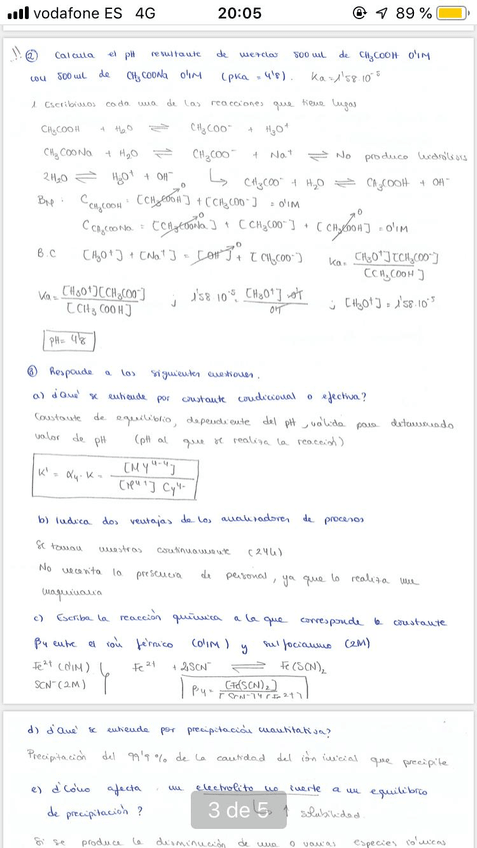 vodafone ES 4G 20:05 89 %
!! ② Calcula el pH resultante de mezclar 500 mL de CH₃COOH 0'1M
con 500 mL de CH₃COONa 0'1M (pKa = 4'8). Ka = 1'58·10⁻⁵
1. Escribimos cada una de las reacciones que tiene lugar
CH₃COOH + H₂O ⇌ CH₃COO⁻ + H₃O⁺
CH₃COONa + H₂O ⇌ CH₃COO⁻ + Na⁺ ⇌ No produce hidrólisis
2H₂O ⇌ H₃O⁺ + OH⁻ ↳ CH₃COO⁻ + H₂O ⇌ CH₃COOH + OH⁻
C CH₃COOH: [CH₃COOH] + [CH₃COO⁻] = 0'1M
C CH₃COONa = [CH₃COONa] + [CH₃COO⁻] + [CH₃COOH] = 0'1M
B.C [H₃O⁺] + [Na⁺] = [OH⁻] + [CH₃COO⁻] Ka = [H₃O⁺][CH₃COO⁻] / [CH₃COOH]
Ka = [H₃O⁺][CH₃COO⁻] / [CH₃COOH] ; 1'58·10⁻⁵ = [H₃O⁺]·0'1 / 0'1 ; [H₃O⁺] = 1'58·10⁻⁵
pH = 4'8
⑧ Responde a las siguientes cuestiones.
a) ¿Qué se entiende por constante condicional o efectiva?
Constante de equilibrio, dependiente del pH, válida para determinado
valor de pH (pH al que se realiza la reacción)
K' = α₄·K = [MY⁴⁻⁴] / Cy⁴⁻
b) Indica dos ventajas de los analizadores de procesos
Se toman muestras continuamente (24h)
No necesita la presencia de personal, ya que la realiza una
maquinaria
c) Escriba la reacción química a la que corresponde la constante
β₄ entre el ión férrico (0'1M) y sulfocianuro (2M)
Fe²⁺ (0'1M) Fe²⁺ + 2SCN⁻ ⇌ Fe(SCN)₂
SCN⁻ (2M) β₄ = [Fe(SCN)₂]
d) ¿Qué se entiende por precipitación cuantitativa?
Precipitación del 99'9 % de la cantidad del ión inicial que precipite
e) ¿Cómo afecta un electrolito no inerte a un equilibrio
de precipitación? 3 de 5 ↑ solubilidad
Si se produce la disminución de una o varias especies iónicas